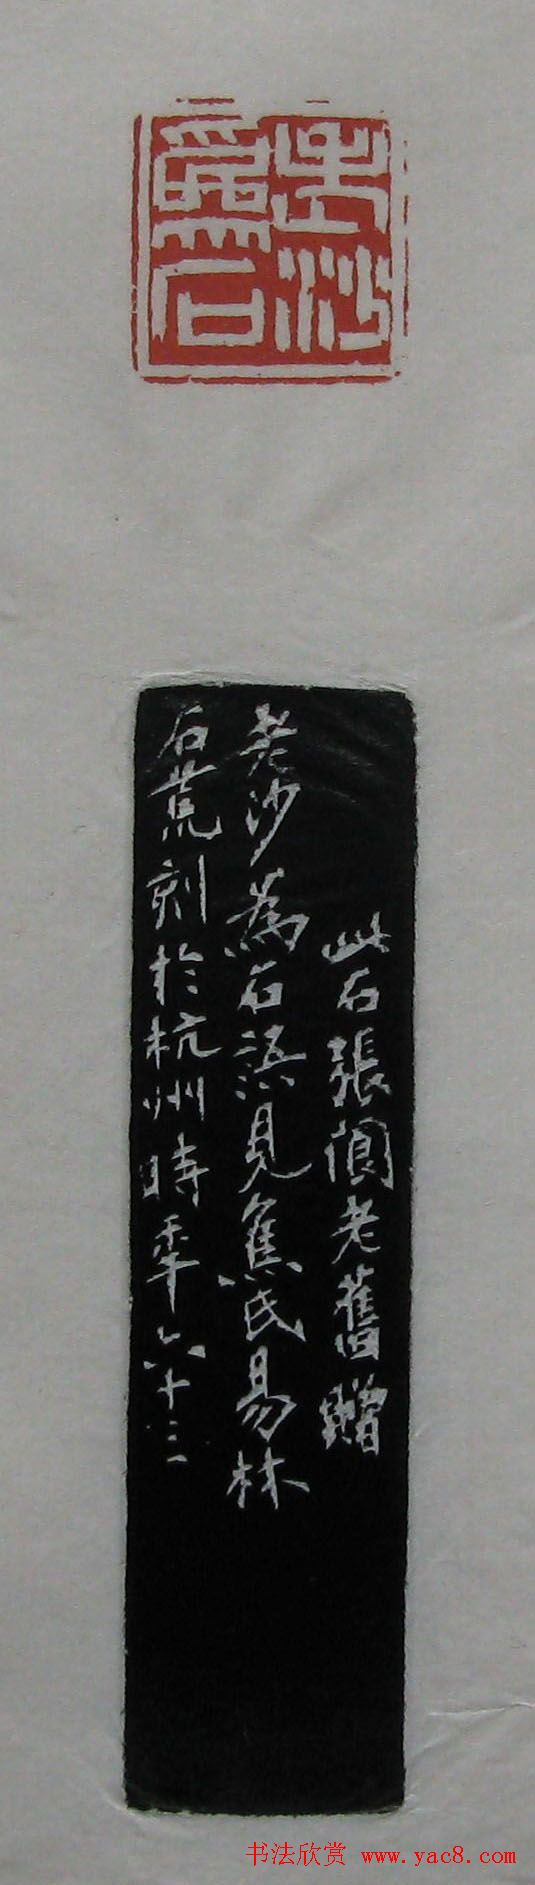 老沙
爲石
此石張閬老舊贈
老沙為石語見焦氏易林
石荒刻於杭州時年六十三
书法欣赏 www.yac8.com